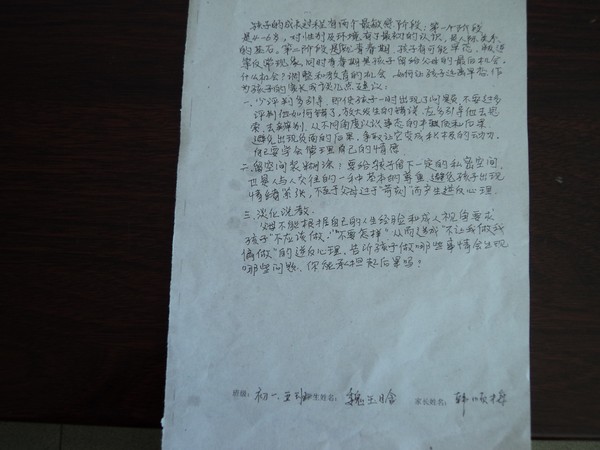 孩子的成长过程有两个最敏感阶段：第一个阶段
是4-6岁，对性别及环境有了最初的认识，是人际关系
的基石。第二阶段是即青春期，孩子有可能早恋、叛逆
等反常现象，同时青春期是孩子留给父母的最后机会，
什么机会？调整和教育的机会，如何让孩子远离早恋，作
为孩子的家长我谈几点建议：
一、少评判多引导，即使孩子一时出现了问题，不要过多
评判他如何错了，放大发生的错误，应多引导他去思
索、去辨别，从不同角度认识事态的本质和后果，
避免出现负面的后果，争取让它变成积极的动力，
自己要学会管理自己的情绪
二、留空间装糊涂：要给孩子留下一定的私密空间，
也是人与人交往的一种基本的尊重，避免孩子出现
情绪紧张，不至于父母过于“苛刻”而产生逆反心理
三、淡化说教
父母不能根据自己的人生经验和成人视角要求
孩子“不应该做”“不要怎样”从而造成“不让我做我
偏做”的逆反心理，告诉孩子做哪些事情会出现
哪些问题，你能承担起后果吗？
班级：初一．五班 学生姓名：魏玉晗 家长姓名：韩顺